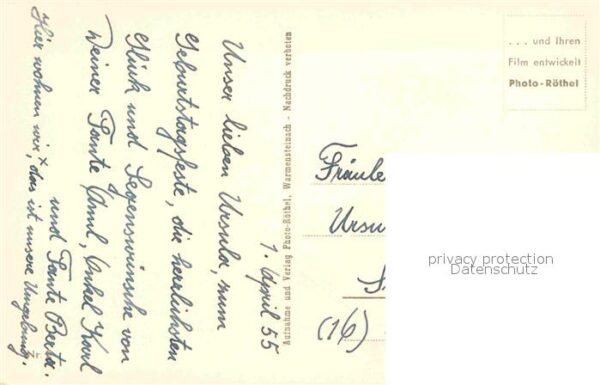 1. April 55
Unser lieben Ursula, zum
Geburtstagfeste, die herzlichsten
Glück und Segenswünsche von
Deiner Tante Aml, Onkel Karl
und Tante Berta.
Hier wohnen wir x, das ist unsere Umgebung.
Nr.
Aufnahme und Verlag Photo-Röthel, Warmensteinach - Nachdruck verboten
... und Ihren
Film entwickelt
Photo-Röthel
Fräule
Ursu
(16)
privacy protection
Datenschutz